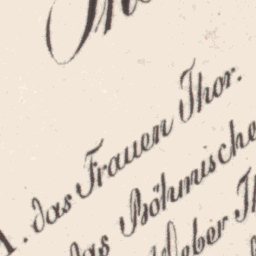 1. das Frauen Thor.
das Böhmische
Weber Th